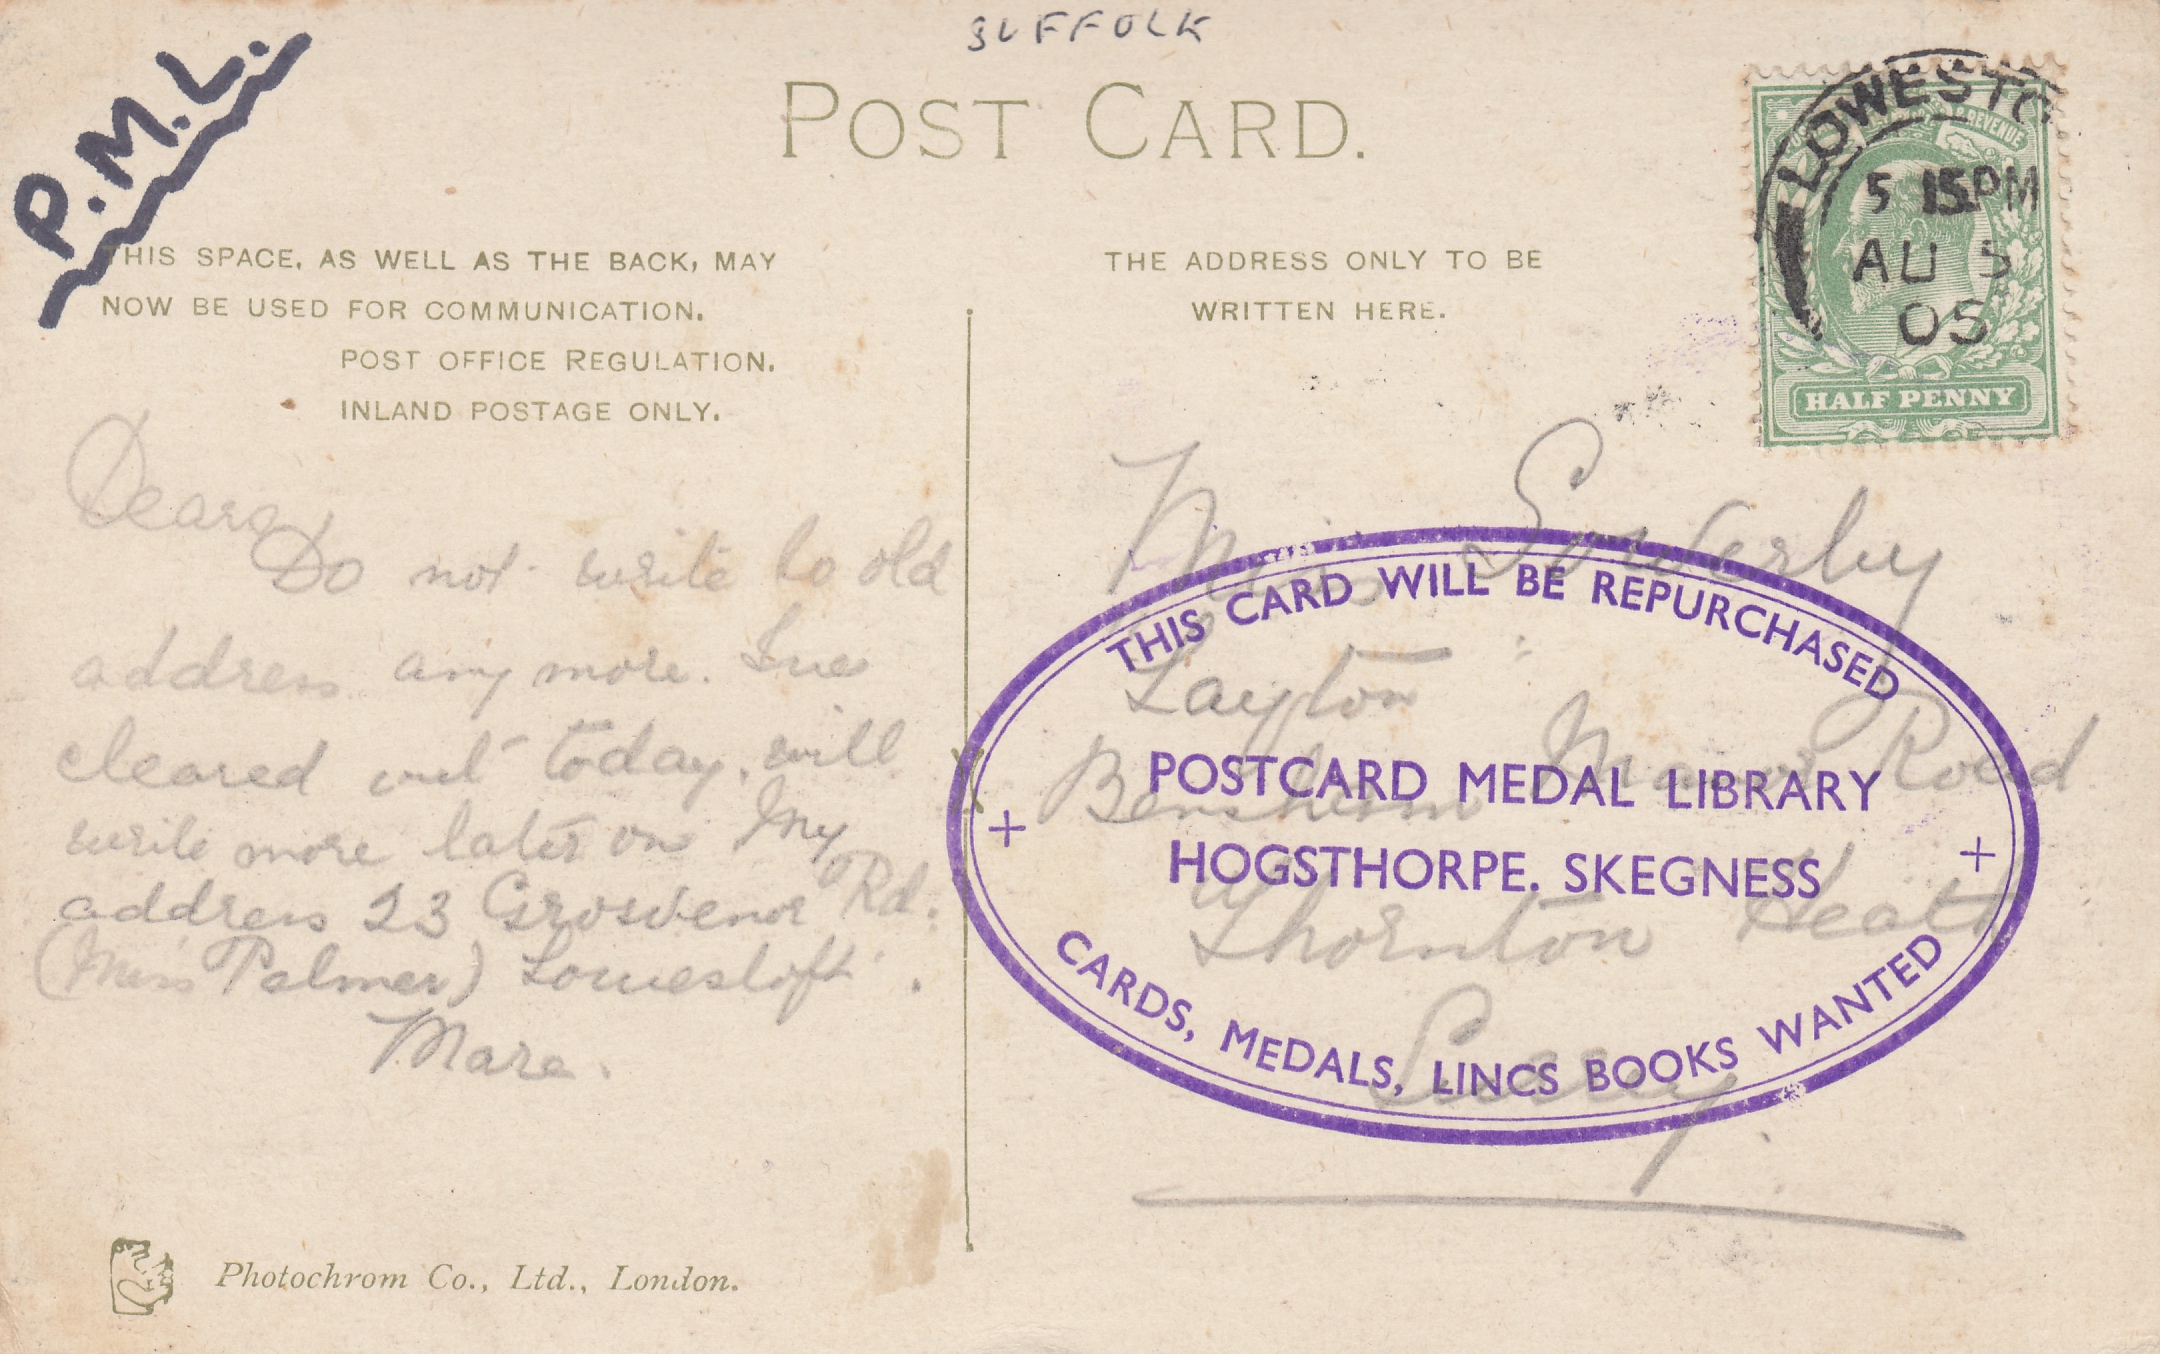 SUFFOLK
P.M.L.
POST CARD.
THIS SPACE, AS WELL AS THE BACK, MAY
NOW BE USED FOR COMMUNICATION.
POST OFFICE REGULATION.
INLAND POSTAGE ONLY.
THE ADDRESS ONLY TO BE
WRITTEN HERE.
LOWESTO
5 15PM
AU 5
05
REVENUE
HALF PENNY
Do not write to old
address any more.
cleared out today, will
write more later on My
address 23 Grosvenor Rd.
(Miss Palmer) Lowestoft.
Miss Sowerby
Layton
Bensham Manor Road
Thornton Heath
Surrey
THIS CARD WILL BE REPURCHASED
POSTCARD MEDAL LIBRARY
HOGSTHORPE. SKEGNESS
CARDS, MEDALS, LINCS BOOKS WANTED
Photochrom Co., Ltd., London.